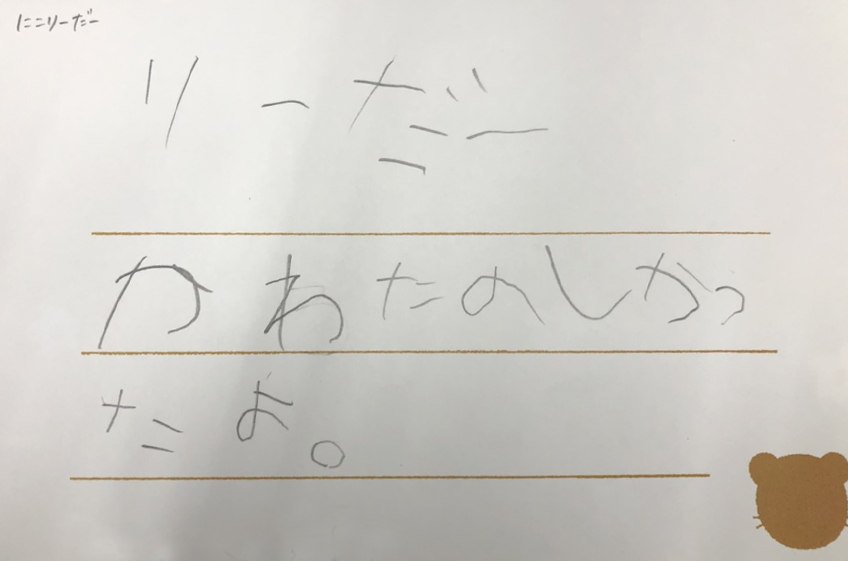 にこりーだー
りーだー
かわたのしかっ
たよ。